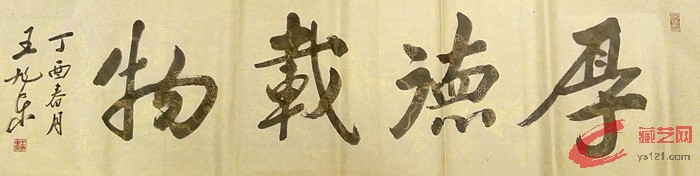 厚德載物
丁酉春月
藏艺网
ys121.com